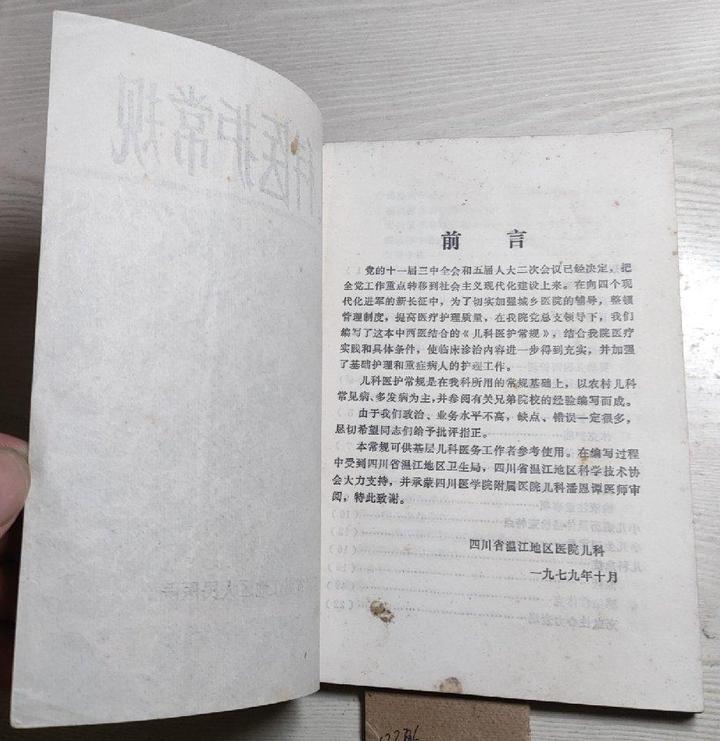 前 言
党的十一届三中全会和五届人大二次会议已经决定，把
全党工作重点转移到社会主义现代化建设上来。在向四个现
代化进军的新长征中，为了切实加强城乡医院的辅导，整顿
管理制度，提高医疗护理质量，在我院党总支领导下，我们
编写了这本中西医结合的《儿科医护常规》，结合我院医疗
实践和具体条件，使临床诊治内容进一步得到充实，并加强
了基础护理和重症病人的护理工作。
儿科医护常规是在我科所用的常规基础上，以农村儿科
常见病、多发病为主，并参阅有关兄弟院校的经验编写而成。
由于我们政治、业务水平不高，缺点、错误一定很多，
恳切希望同志们给予批评指正。
本常规可供基层儿科医务工作者参考使用。在编写过程
中受到四川省温江地区卫生局，四川省温江地区科学技术协
会大力支持，并承蒙四川医学院附属医院儿科潘恩谭医师审
阅，特此致谢。
四川省温江地区医院儿科
一九七九年十月